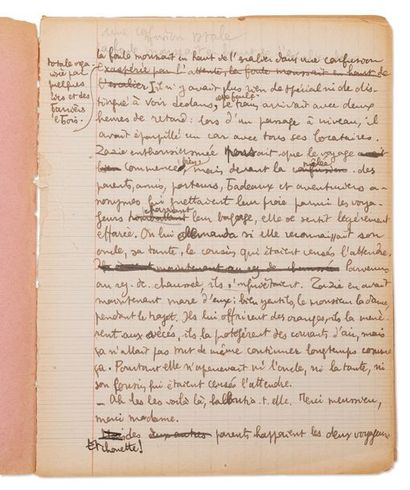 la foule moussait en haut de l'escalier dans une confusion
totale orga-
Exaspérée par l'attente, la foule moussait en haut de
l'escalier Il n'y avait plus rien de spécial ni de dis-
tingué à voir dedans, le train arrivait avec deux
heures de retard : lors d'un passage à niveau, il
avait éparpillé un car avec tous ses locataires.
Zazie enthousiasmée pensait que le voyage
commence, mais devant la mêlée des
parents, amis, porteurs, badauds et aventuriers a-
nonymes qui guettaient leur proie parmi les voya-
geurs charriant leur bagage, elle se sentit légèrement
effarée. On lui demanda si elle reconnaissait son
oncle, sa tante, le cousin qui étaient censés l'attendre.
Parvenus
au rez-de-chaussée, ils s'inquiétaient. Zazie en avait
maintenant marre d'eux : bien gentils, le monsieur la dame,
pendant le trajet. Ils lui offrirent des oranges, ils la menè-
rent aux vécés, ils la protégèrent des courants d'air, mais
ça n'allait pas tout de même continuer longtemps comme
ça. Pourtant elle n'apercevait ni l'oncle, ni la tante, ni
son cousin, qui étaient censés l'attendre.
- Ah les les voilà là, balbutia-t-elle. Merci meussieu,
merci madame.
des deux autres parents happaient les deux voyageurs
Et chouette !